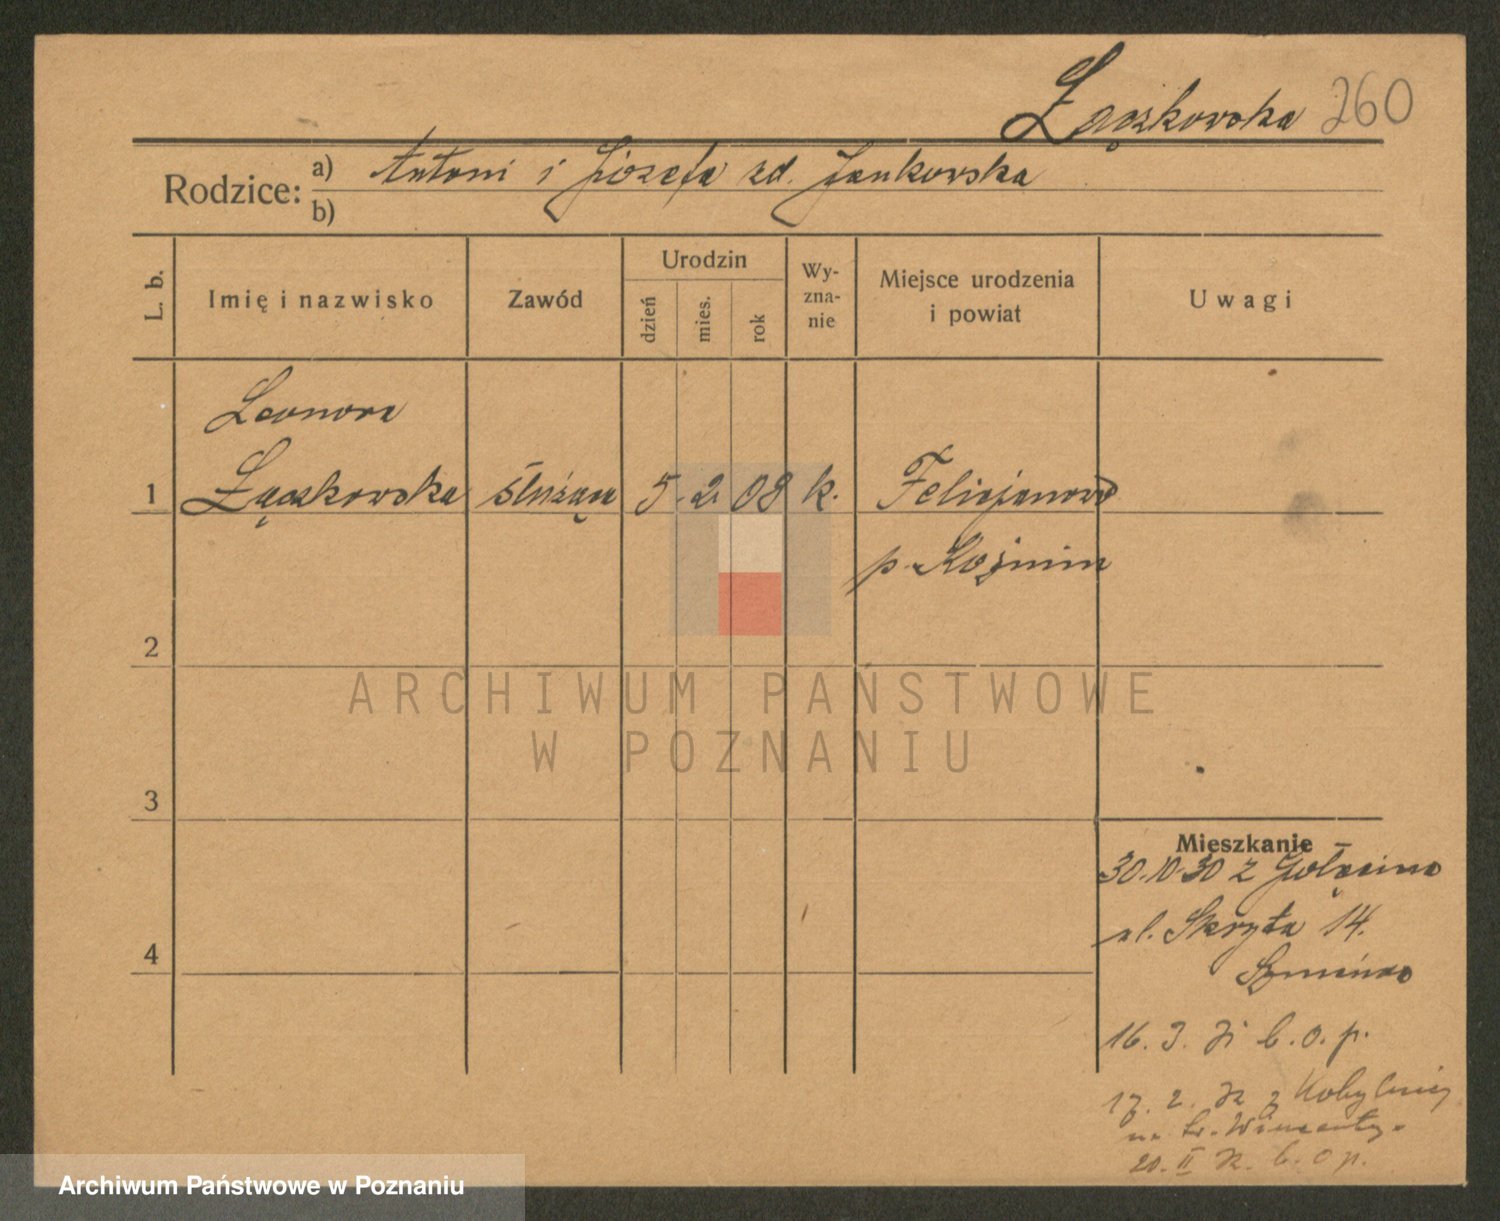 Łączkowska 260
Rodzice: a) Antoni i Józefa zd. Jankowska
b)
L. b. Imię i nazwisko Zawód Urodzin dzień mies. rok Wyznanie Miejsce urodzenia i powiat Uwagi
Leonora
1 Łączkowska służąca 5. 2. 08 k. Felicjanowo
p. Koźmin
2
ARCHIWUM PAŃSTWOWE
W POZNANIU
3
Mieszkanie
30.10.30 z Golęcina
ul. Skryta 14.
4
16. 3. 31 b.o.p.
17. 2. 32 z Kobylnicy
20. II 32. b.o.p.
Archiwum Państwowe w Poznaniu